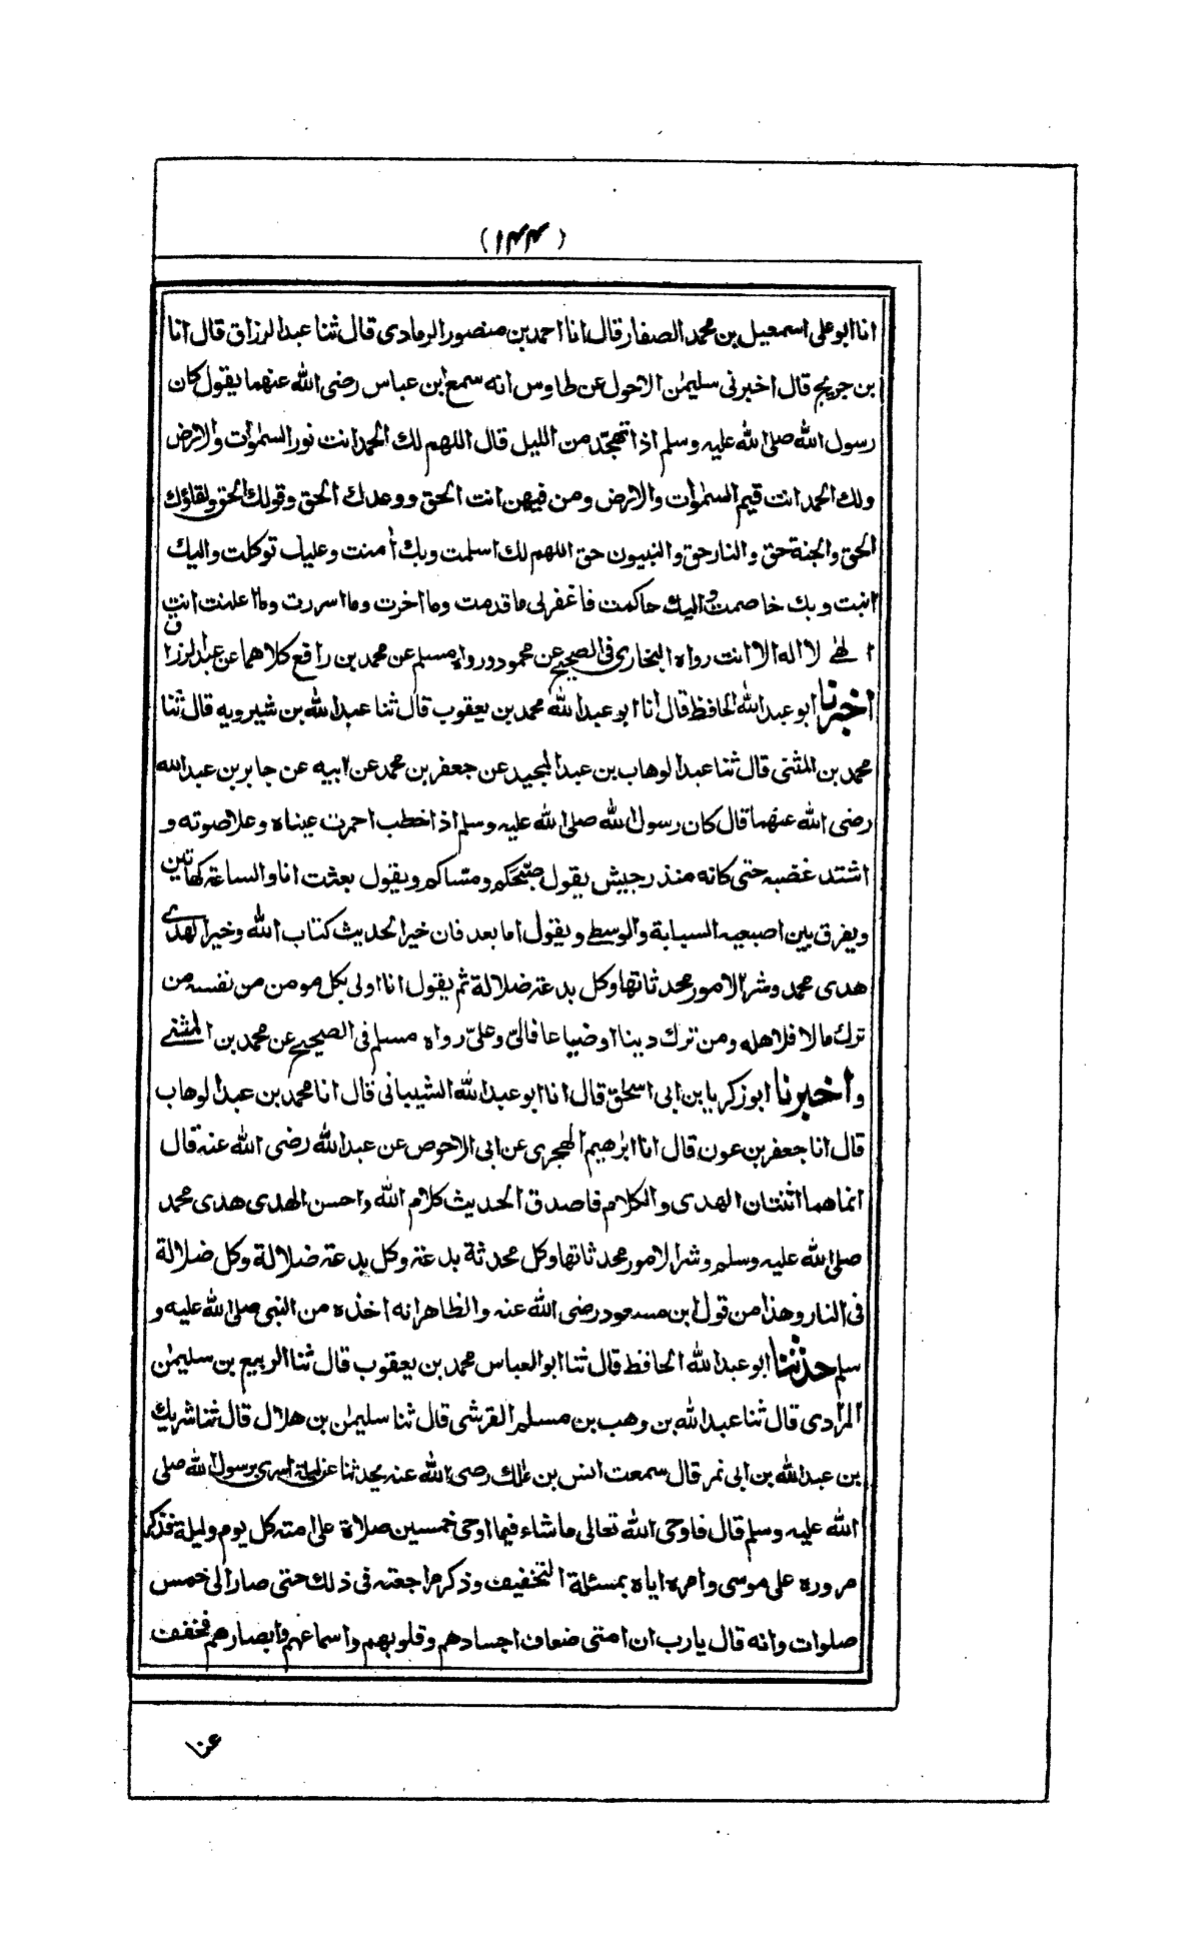 (١٤٤)
انا ابو على اسمعيل بن محمد الصفار قال انا احمد بن منصور الرمادى قال ثنا عبد الرزاق قال انا
ابن جريج قال اخبرنى سليمٰن الاحول عن طاوس انه سمع ابن عباس رضى الله عنهما يقول كان
رسول الله صلى الله عليه وسلم اذا تهجّد من الليل قال اللهم لك الحمد انت نور السمٰوات والارض
ولك الحمد انت قيم السمٰوات والارض ومن فيهن انت الحق ووعدك الحق وقولك الحق ولقاؤك
الحق والجنة حق والنار حق والنبيون حق اللهم لك اسلمت وبك اٰمنت وعليك توكلت واليك
انبت وبك خاصمت واليك حاكمت فاغفرلى ما قدمت وما اخرت وما اسررت وما اعلنت انت
الٰهى لا اله الا انت رواه البخارى فى الصحيح عن محمود ورواه مسلم عن محمد بن رافع كلاهما عن عبد الرزاق
اخبرنا ابو عبد الله الحافظ قال انا ابو عبد الله محمد بن يعقوب قال ثنا عبد الله بن شيرويه قال ثنا
محمد بن المثنى قال ثنا عبد الوهاب بن عبد المجيد عن جعفر بن محمد عن ابيه عن جابر بن عبد الله
رضى الله عنهما قال كان رسول الله صلى الله عليه وسلم اذا خطب احمرت عيناه وعلا صوته و
اشتد غضبه حتى كانه منذر جيش يقول صبحكم ومساكم ويقول بعثت انا والساعة كهاتين
ويفرق بين اصبعيه السبابة والوسطى ويقول اما بعد فان خير الحديث كتاب الله وخير الهدى
هدى محمد وشر الامور محدثاتها وكل بدعة ضلالة ثم يقول انا اولى بكل مومن من نفسه من
ترك مالا فلاهله ومن ترك دينا اوضياعا فالىّ وعلىّ رواه مسلم فى الصحيح عن محمد بن المثنى
واخبرنا ابو زكريا بن ابى اسحٰق قال انا ابو عبد الله الشيبانى قال انا محمد بن عبد الوهاب
قال انا جعفر بن عون قال انا ابرٰهيم الهجرى عن ابى الاحوص عن عبد الله رضى الله عنه قال
انما هما اثنتان الهدى والكلام فاصدق الحديث كلام الله واحسن الهدى هدى محمد
صلى الله عليه وسلم وشر الامور محدثاتها وكل محدثة بدعة وكل بدعة ضلالة وكل ضلالة
فى النار وهذا من قول ابن مسعود رضى الله عنه والظاهر انه اخذه من النبى صلى الله عليه و
سلم حدثنا ابو عبد الله الحافظ قال ثنا ابو العباس محمد بن يعقوب قال ثنا الربيع بن سليمٰن
المرادى قال ثنا عبد الله بن وهب بن مسلم القرشى قال ثنا سليمٰن بن هلال قال ثنا شريك
بن عبد الله بن ابى نمر قال سمعت انس بن مٰلك رضى الله عنه يحدثنا عن ليلة اسرى برسول الله صلى
الله عليه وسلم قال فاوحى الله تعالى ما شاء فيما اوحى خمسين صلاة على امته كل يوم وليلة فذكر
مروره على موسى وامره اياه بمسئلة التخفيف وذكر مراجعته فى ذلك حتى صار الى خمس
صلوات وانه قال يا رب ان امتى ضعاف اجسادهم وقلوبهم واسماعهم وابصارهم فخفف
عنا